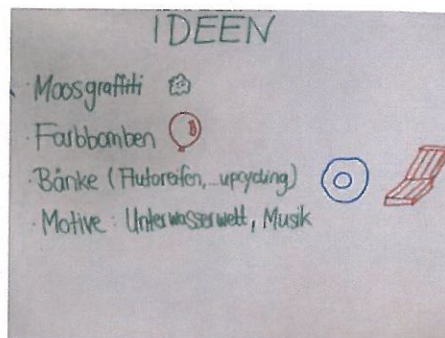 IDEEN
· Moosgraffiti
· Farbbomben
· Bänke (Autoreifen,...upcycling)
· Motive: Unterwasserwelt, Musik